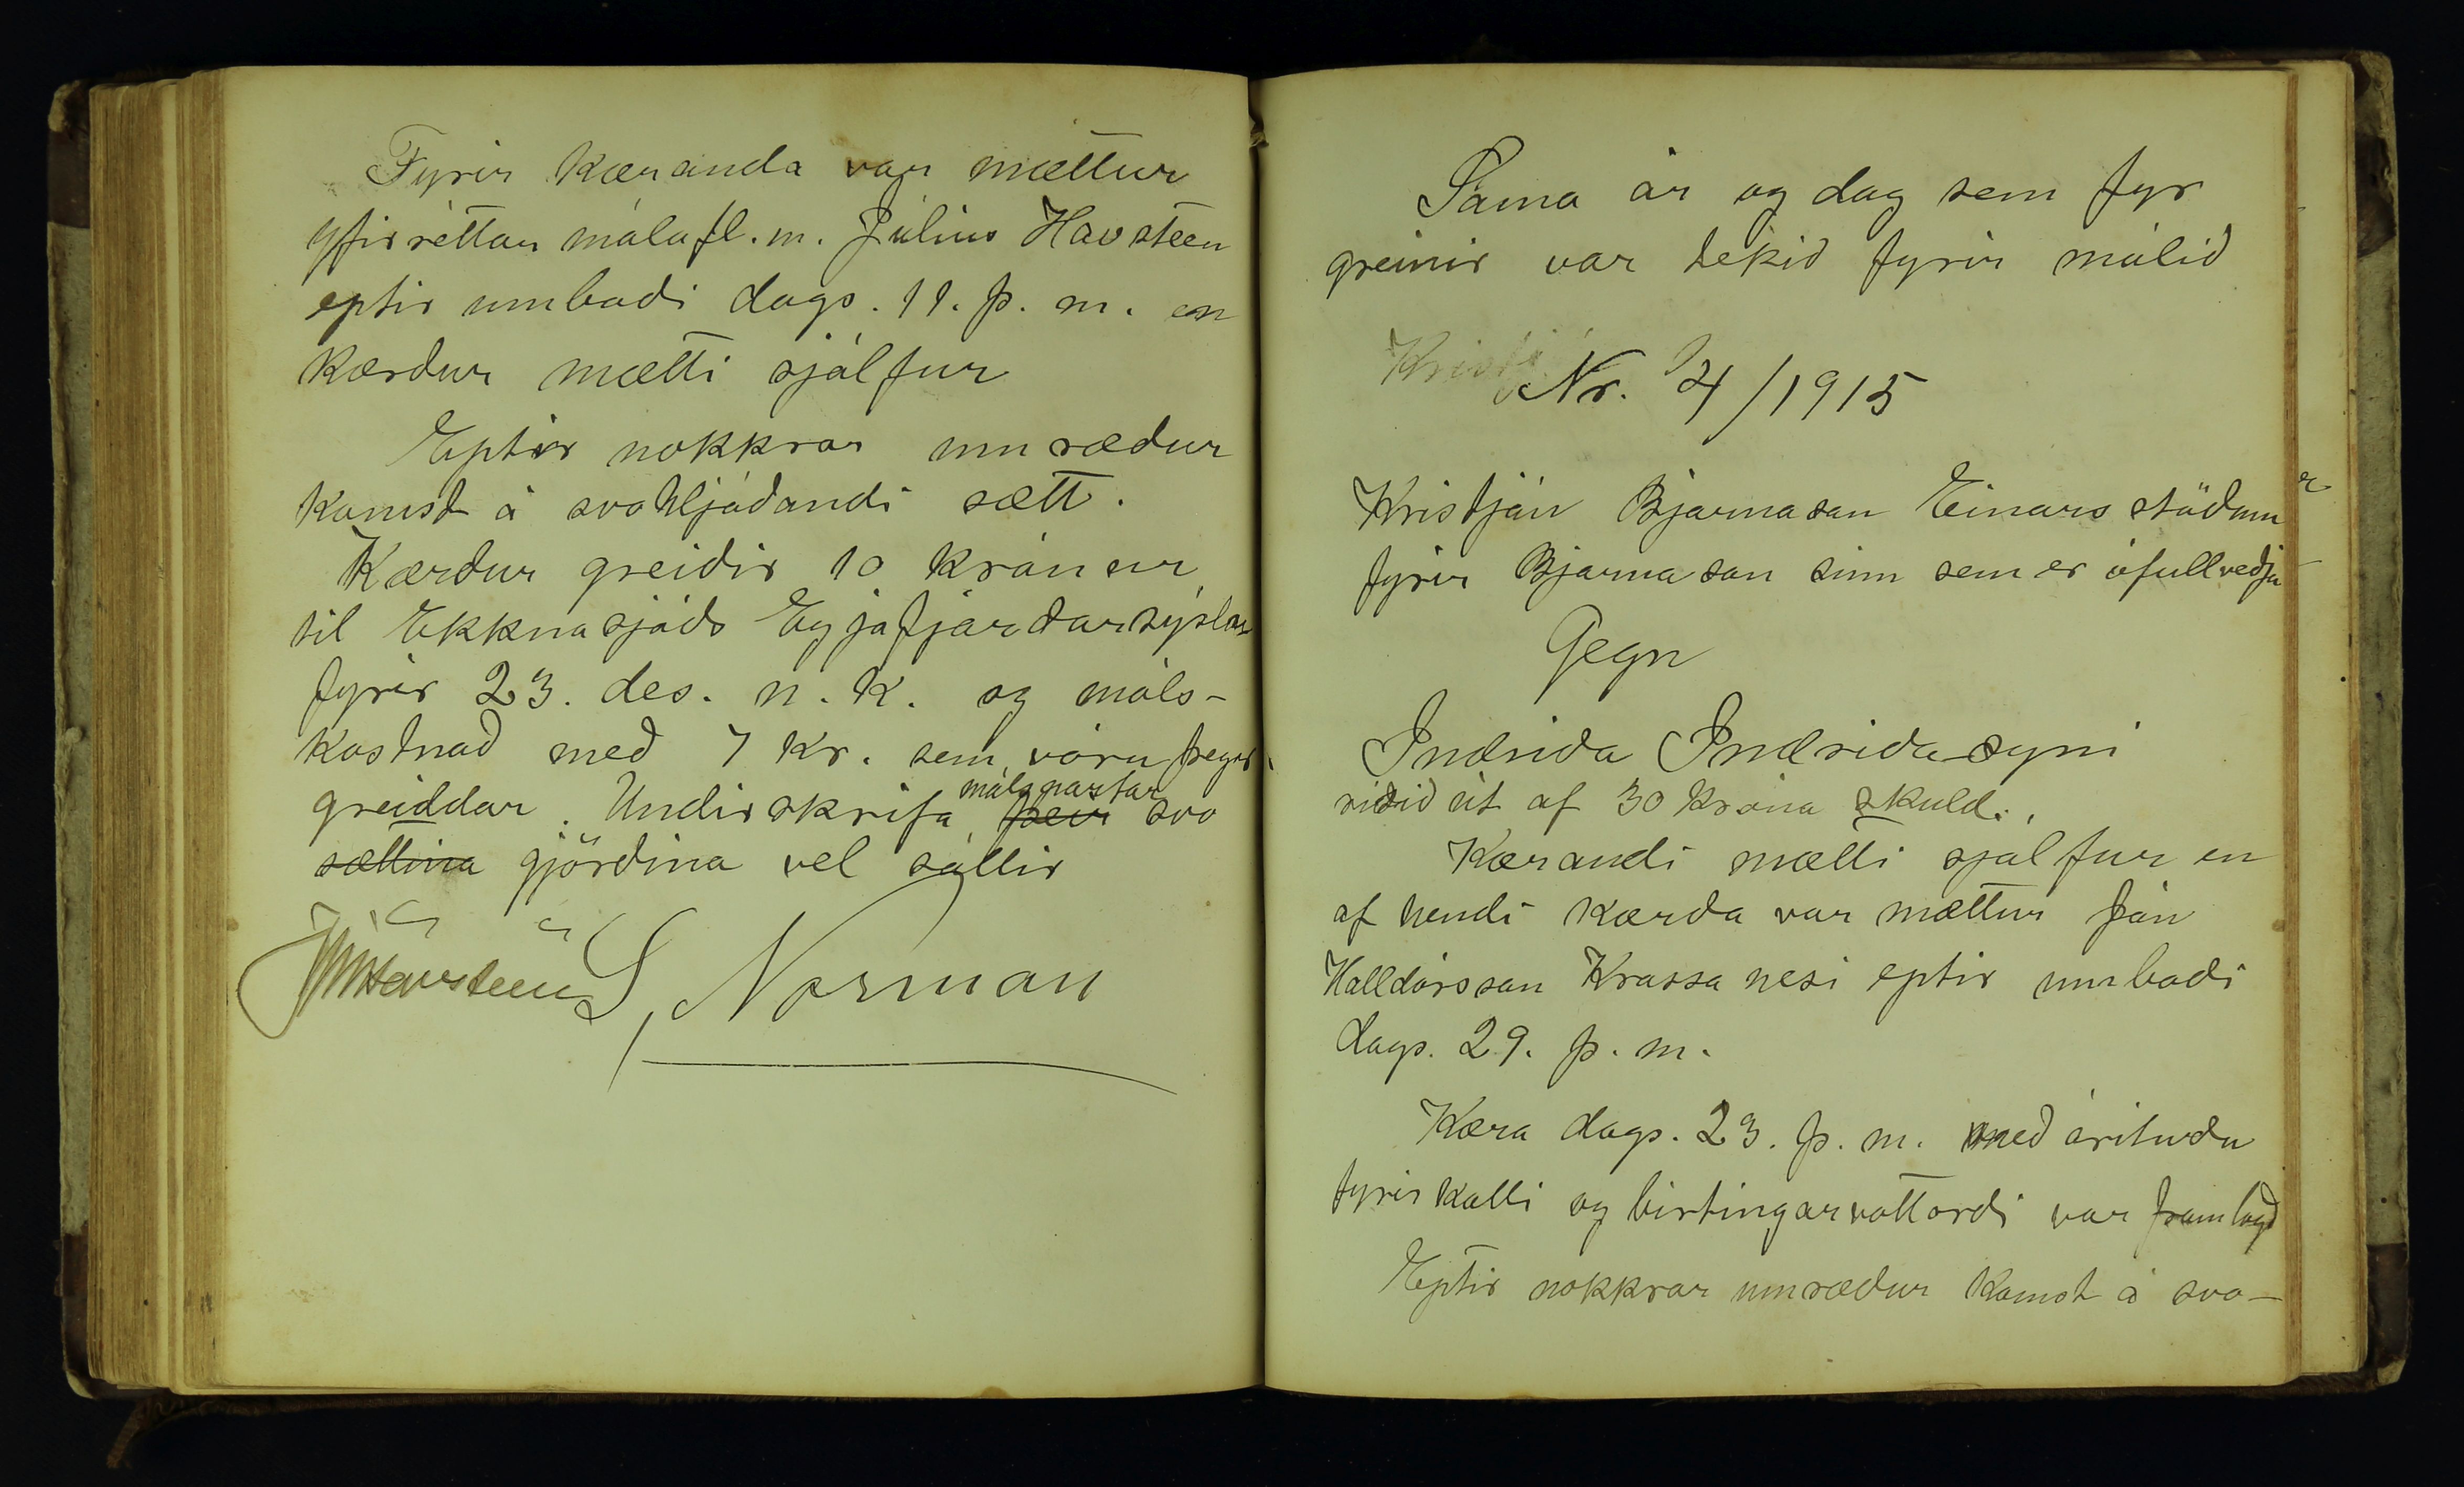 Fyrir kæranda var mættur
yfirréttar málafl.m. Júlíus Havsteen
eptir umboði dags. 11. þ. m. en
kærður mætti sjálfur
Eptir nokkrar umræður
komst á svohljóðandi sætt.
Kærður greiðir 10 krónur
til Ekknasjóðs Eyjafjarðarsýslu
fyrir 23. des. n. k. og máls-
kostnað með 7 kr. sem vóru þegar
greiddar. Undirskrifa málspartar þeir svo
sættina gjörðina vel sáttir
JúlHavsteen S, Norman
Sama ár og dag sem fyr
greinir var tekið fyrir málið
Kristj
Nr. 4/1915
Kristján Bjarnason Einarsstöðum
fyrir Bjarna son sinn sem er ófullveðja
Gegn
Indriða Indriðasyni
risið út af 30 króna skuld.
Kærandi mætti sjálfur en
af hendi kærða var mættur Jón
Halldórsson Krossanesi eptir umboði
dags. 29. þ. m.
Kæra dags. 23. þ. m. með árituðu
fyrirkalli og birtingarvottorði var framlögð
Eptir nokkrar umræður komst á svo-